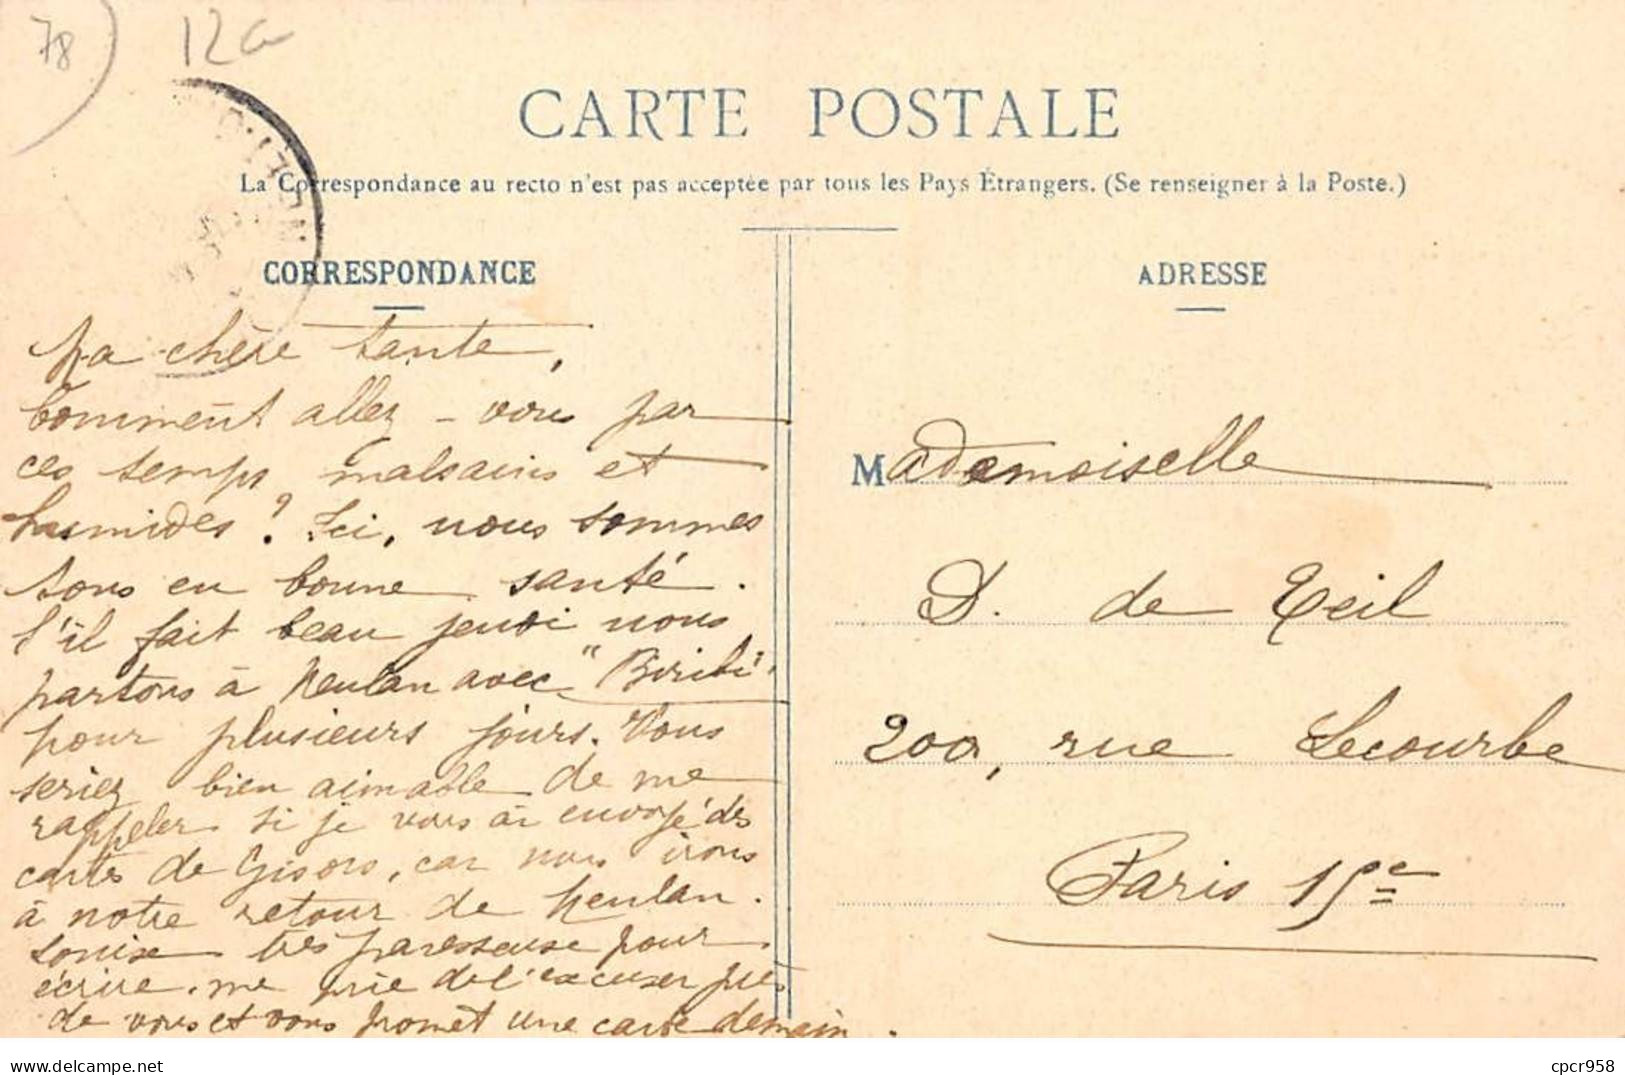 78
12G
CARTE POSTALE
La Correspondance au recto n'est pas acceptée par tous les Pays Étrangers. (Se renseigner à la Poste.)
CORRESPONDANCE
Ma chère tante,
Comment allez-vous par
ces temps malsains et
humides ? Ici, nous sommes
tous en bonne santé.
S'il fait beau jeudi nous
partons à Meulan avec "Biribi"
pour plusieurs jours. Vous
seriez bien aimable de me
rappeler si je vous ai envoyé des
cartes de Gisors, car nous irons
à notre retour de Meulan.
Louise très paresseuse pour
écrire. me prie de l'excuser près
de vous et vous promet une carte demain.
ADRESSE
Mademoiselle
D. de Teil
200, rue Lecourbe
Paris 15e
cpcr958